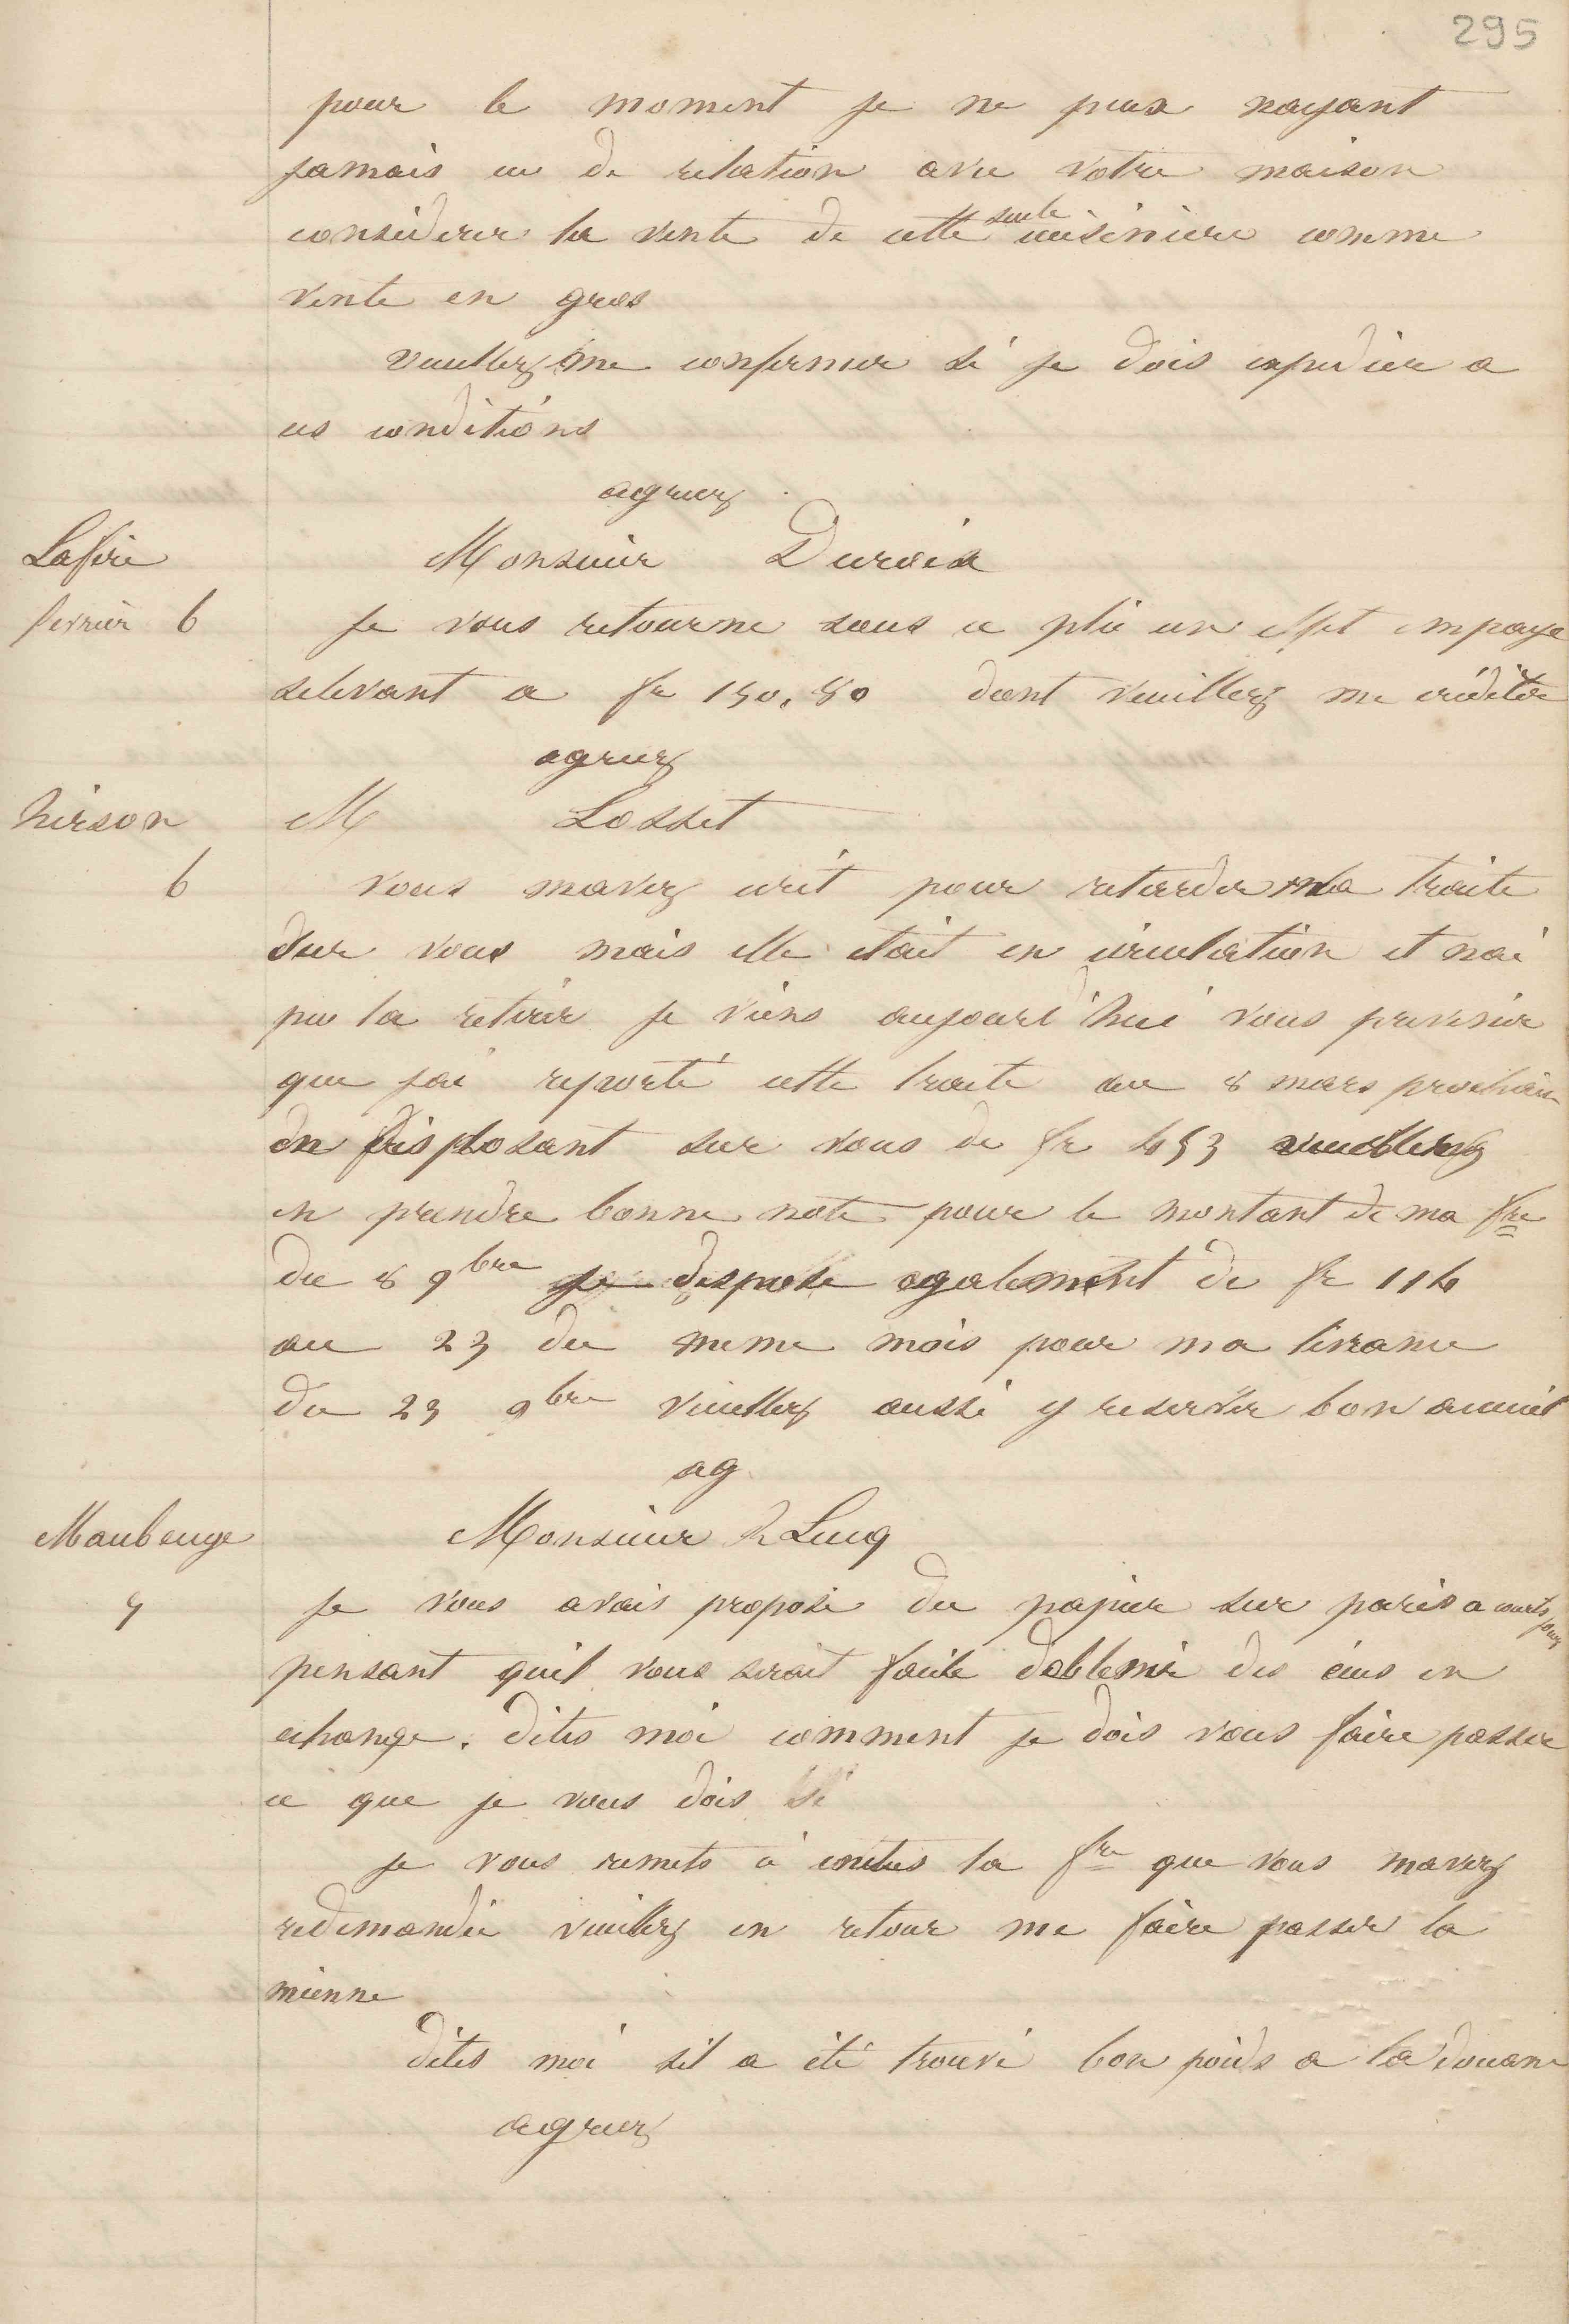 295
pour le moment je ne peux nayant
jamais eu de relation avec votre maison
considerer la vente de cette seule cuisiniere comme
vente en gros
veuillez me confirmer si je dois expedier a
ces conditions
agreez
Lafère
Monsieur Duroix
fevrier 6
Je vous retourne sous ce plie un effet empaye
selevant a fr 150.80 dont veuillez me créditer
agreez
hirson
M Losset
6
vous mavez ecrit pour retarder ma traite
sur vous mais elle etait en circulation et nai
pu la retirer je viens aujourd'hui vous prevenir
que jai reporté cette traite au 8 mars prochain
en disposant sur vous de fr 453 veuillez
en prendre bonne note pour le montant de ma fre
du 8 9bre je dispose egalement de fr 114
au 23 du meme mois pour ma livrance
du 23 9bre veuillez aussi y reserver bon acceuil
ag
Maubeuge
Monsieur Lucq
Je vous avais propose du papier sur paris a courts jours
pensant quil vous serait facile dobtenir des écus en
echange. dites moi comment je dois vous faire passer
ce que je vous dois si
je vous remets ci inclus la fre que vous mavez
redemandée veuillez en retour me faire passer la
mienne
dites moi sil a été trouvé bon poids a la douane
agreez